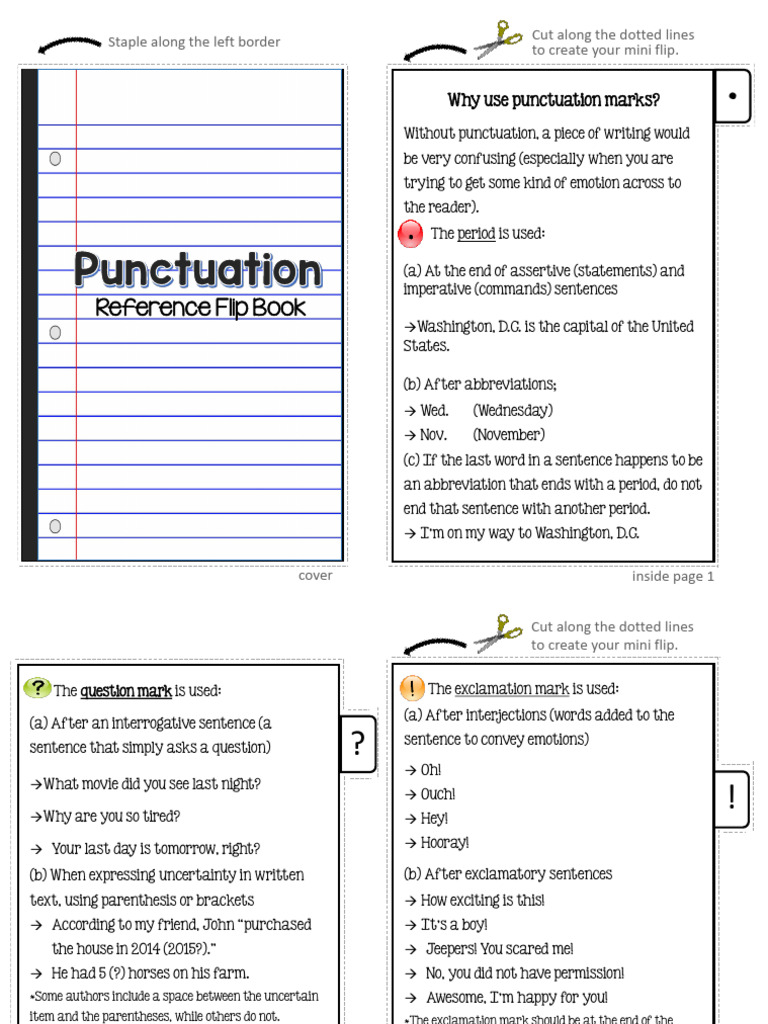 Staple along the left border
Punctuation
Reference Flip Book
cover
Cut along the dotted lines
to create your mini flip.
Why use punctuation marks?
.
Without punctuation, a piece of writing would
be very confusing (especially when you are
trying to get some kind of emotion across to
the reader).
. The period is used:
(a) At the end of assertive (statements) and
imperative (commands) sentences
→Washington, D.C. is the capital of the United
States.
(b) After abbreviations;
→ Wed. (Wednesday)
→ Nov. (November)
(c) If the last word in a sentence happens to be
an abbreviation that ends with a period, do not
end that sentence with another period.
→ I'm on my way to Washington, D.C.
inside page 1
? The question mark is used:
(a) After an interrogative sentence (a
sentence that simply asks a question)
?
→What movie did you see last night?
→Why are you so tired?
→ Your last day is tomorrow, right?
(b) When expressing uncertainty in written
text, using parenthesis or brackets
→ According to my friend, John "purchased
the house in 2014 (2015?)."
→ He had 5 (?) horses on his farm.
*Some authors include a space between the uncertain
item and the parentheses, while others do not.
Cut along the dotted lines
to create your mini flip.
! The exclamation mark is used:
(a) After interjections (words added to the
sentence to convey emotions)
→ Oh!
→ Ouch!
!
→ Hey!
→ Hooray!
(b) After exclamatory sentences
→ How exciting is this!
→ It's a boy!
→ Jeepers! You scared me!
→ No, you did not have permission!
→ Awesome, I'm happy for you!
*The exclamation mark should be at the end of the